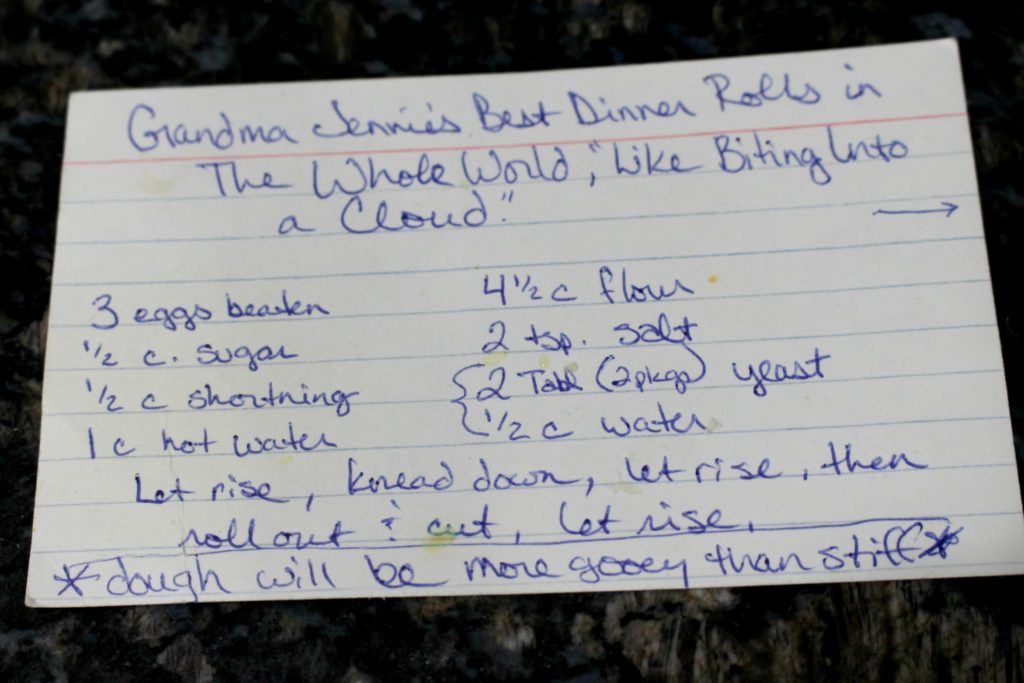 Grandma Jennie's Best Dinner Rolls in
The Whole World, "Like Biting Into
a Cloud."
→
3 eggs beaten
1/2 c. sugar
1/2 c shortning
1 c hot water
4 1/2 c flour
2 tsp. salt
{2 Table (2 pkgs) yeast
{1/2 c water
Let rise, knead down, let rise, then
roll out & cut, let rise.
*dough will be more gooey than stiff*